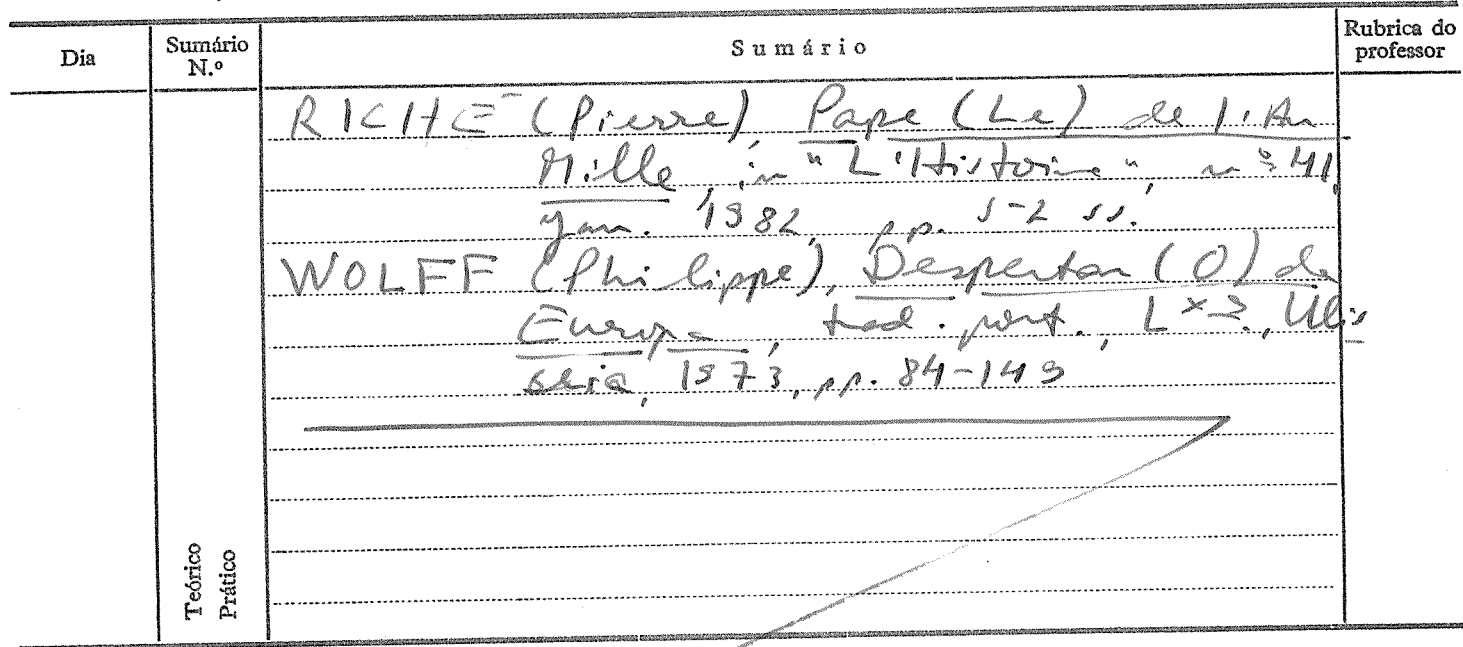 Dia
Sumário N.º
Sumário
Rubrica do professor
RICHÉ (Pierre), Pape (Le) de l'An
Mille, in "L'Histoire", nº 41,
Jan. 1982, pp. 5-2 ss.
WOLFF (Philippe), Despertar (O) da
Europa, trad. port., Lxª., Ulis
seia, 1973, pp. 84-149
Teórico
Prático